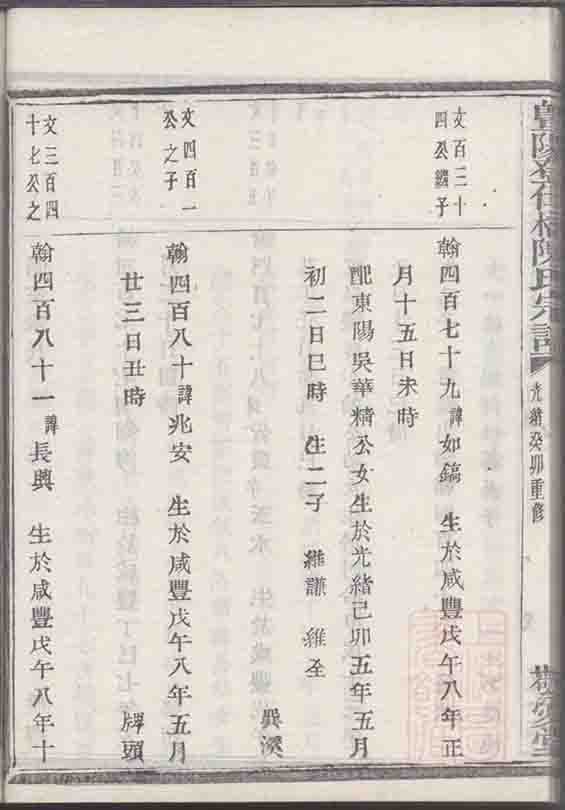 陳氏宗譜
光緒癸卯重修
文百三十
四公繼子
翰四百七十九諱如鎬 生於咸豐戊午八年正
月十五日未時
配東陽吳華精公女生於光緒己卯五年五月
初二日巳時 生二子 維謙 維圣 巽溪
文四百一
公之子
翰四百八十諱兆安 生於咸豐戊午八年五月
廿三日丑時 牌頭
文三百四
十七公之
翰四百八十一諱長興 生於咸豐戊午八年十